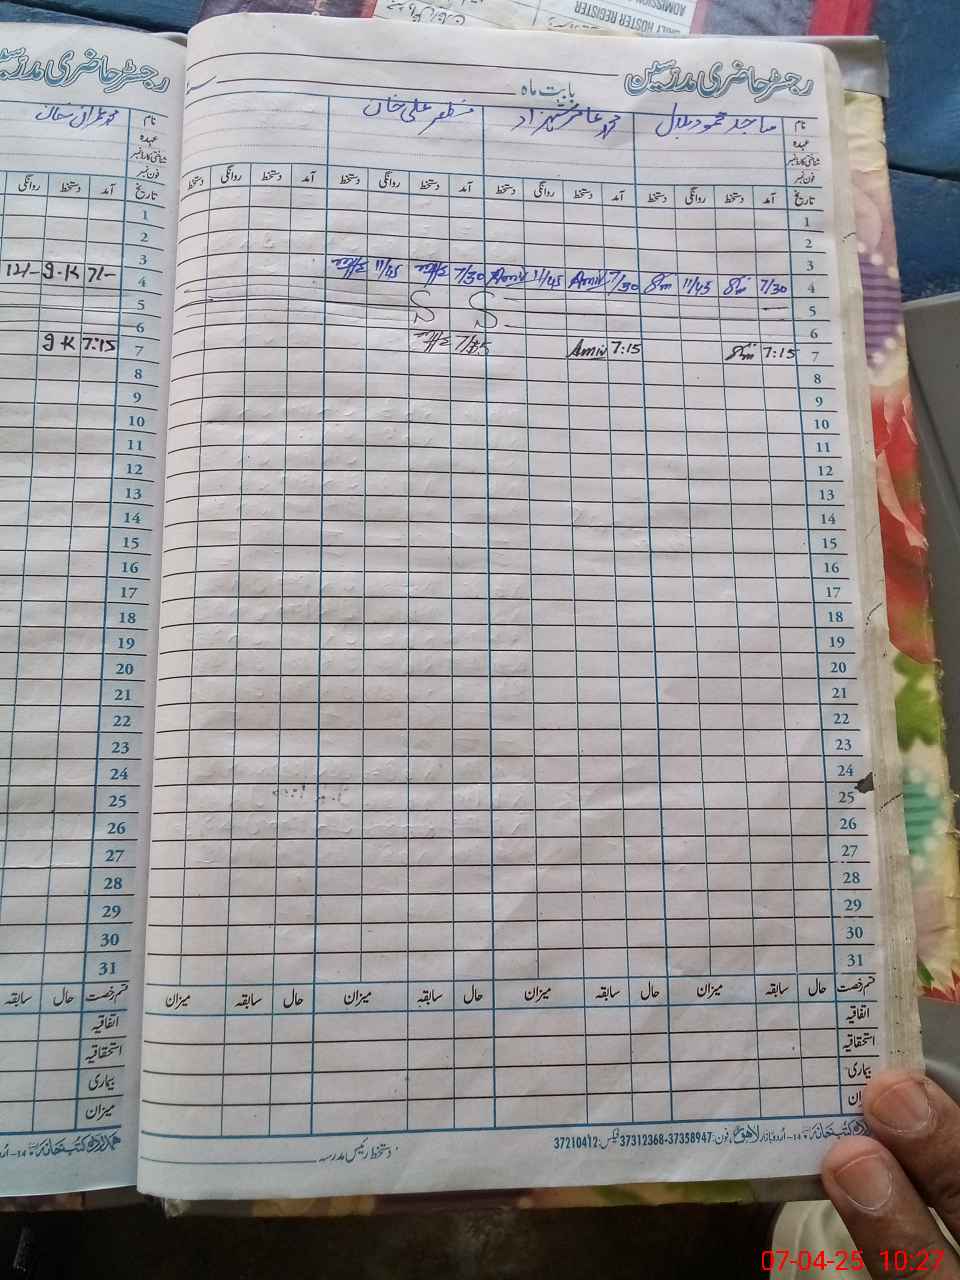 ADMISSION
DAILY ROSTER REGISTER
رجسٹر حاضری مدرسین
رجسٹر حاضری مدرسین
بابت ماہ
نام ساجد محمود بلال محمد عامر شہزاد مظفر علی خان
عہدہ
شناختی کارڈ نمبر
فون نمبر
تاریخ آمد دستخط روانگی دستخط آمد دستخط روانگی دستخط آمد دستخط روانگی دستخط آمد دستخط
1
2
3
4 7/30 11/45 7/30 Amir 11/45 Amir 7/30 11/45
5
6 S S
7 7:15 7:15 Amir 7/15
8
9
10
11
12
13
14
15
16
17
18
19
20
21
22
23
24
25
26
27
28
29
30
31
قسم رخصت حال سابقہ میزان حال سابقہ میزان حال سابقہ میزان حال سابقہ میزان
اتفاقیہ
استحقاقیہ
بیماری
دستخط رئیس مدرسہ
کتب خانہ 14-اردو بازار لاہور، فون: 37358947-37312368 فیکس: 37210412
نام
عہدہ
شناختی کارڈ نمبر
فون نمبر
تاریخ آمد دستخط روانگی
1
2
3
4 7/- g.K 12/-
5
6
7 7:15 g K
8
9
10
11
12
13
14
15
16
17
18
19
20
21
22
23
24
25
26
27
28
29
30
31
قسم رخصت حال سابقہ
اتفاقیہ
استحقاقیہ
بیماری
میزان
کتب خانہ
07-04-25 10:27